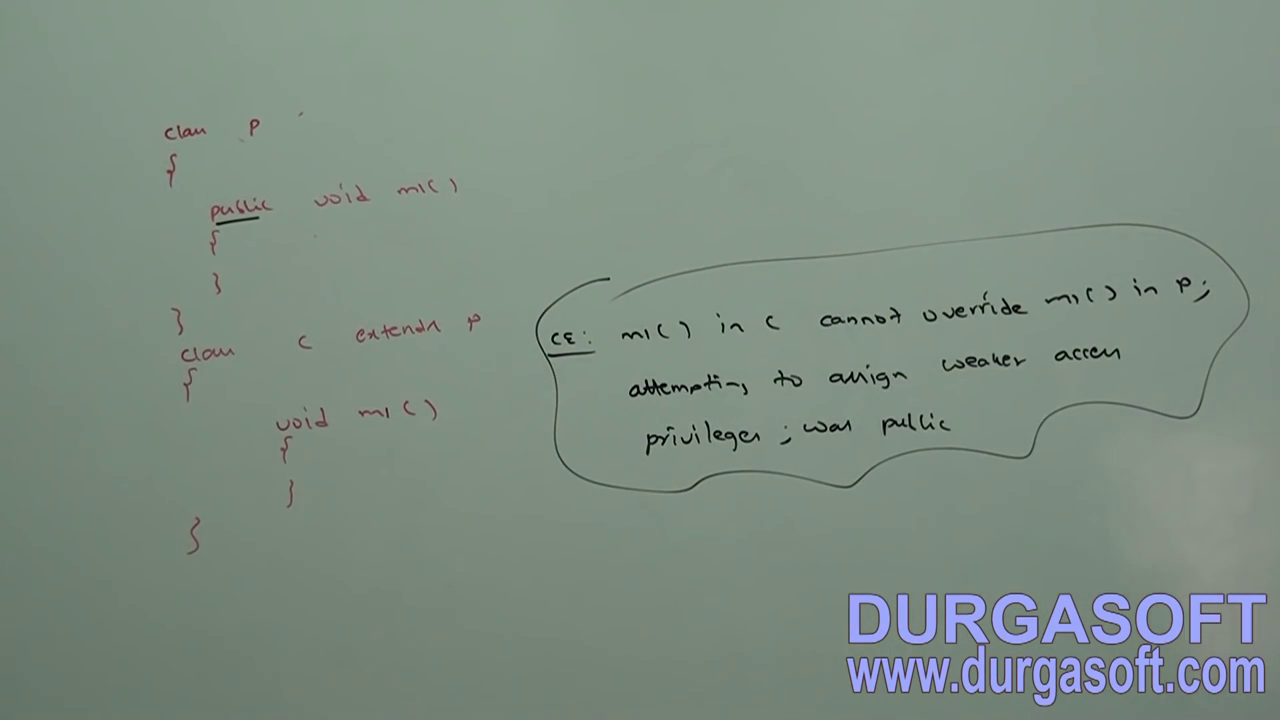 class P
{
public void m1()
{
}
}
class C extends P
{
void m1()
{
}
}
CE: m1() in C cannot override m1() in P;
attempting to assign weaker access
privileges; was public
DURGASOFT
www.durgasoft.com